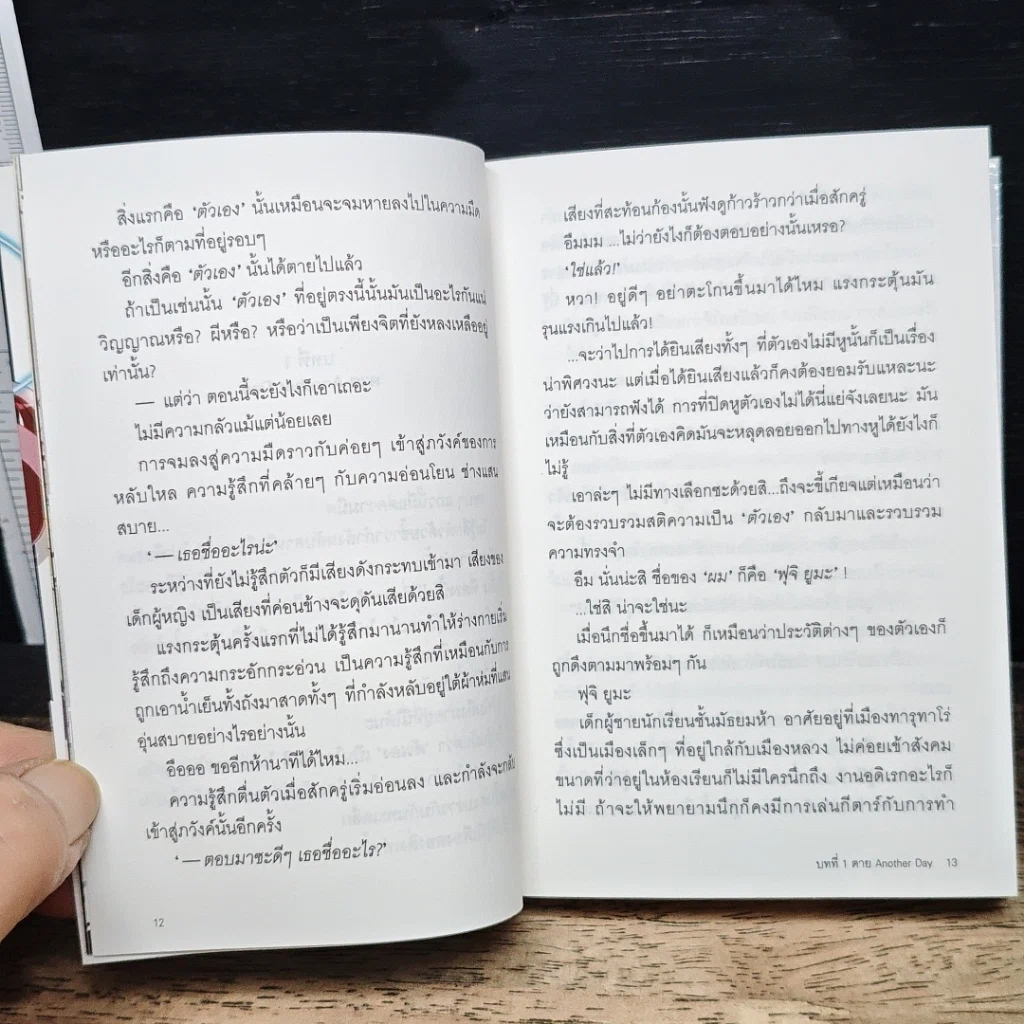 สิ่งแรกคือ ‘ตัวเอง’ นั้นเหมือนจะจมหายลงไปในความมืด
หรืออะไรก็ตามที่อยู่รอบๆ
อีกสิ่งคือ ‘ตัวเอง’ นั้นได้ตายไปแล้ว
ถ้าเป็นเช่นนั้น ‘ตัวเอง’ ที่อยู่ตรงนี้นั้นมันเป็นอะไรกันแน่
วิญญาณหรือ? ผีหรือ? หรือว่าเป็นเพียงจิตที่ยังหลงเหลืออยู่
เท่านั้น?
— แต่ว่า ตอนนี้จะยังไงก็เอาเถอะ
ไม่มีความกลัวแม้แต่น้อยเลย
การจมลงสู่ความมืดราวกับค่อยๆ เข้าสู่ภวังค์ของการ
หลับใหล ความรู้สึกที่คล้ายๆ กับความอ่อนโยน ช่างแสน
สบาย...
‘ — เธอชื่ออะไรน่ะ’
ระหว่างที่ยังไม่รู้สึกตัวก็มีเสียงดังกระทบเข้ามา เสียงของ
เด็กผู้หญิง เป็นเสียงที่ค่อนข้างจะดุดันเสียด้วยสิ
แรงกระตุ้นครั้งแรกที่ไม่ได้รู้สึกมานานทำให้ร่างกายเริ่ม
รู้สึกถึงความกระอักกระอ่วน เป็นความรู้สึกที่เหมือนกับการ
ถูกเอาน้ำเย็นทั้งถังมาสาดทั้งๆ ที่กำลังหลับอยู่ใต้ผ้าห่มที่แสน
อุ่นสบายอย่างไรอย่างนั้น
อืออออ ขออีกห้านาทีได้ไหม...
ความรู้สึกตื่นตัวเมื่อสักครู่เริ่มอ่อนลง และกำลังจะกลับ
เข้าสู่ภวังค์นั้นอีกครั้ง
‘ — ตอบมาซะดีๆ เธอชื่ออะไร?’
12
เสียงที่สะท้อนก้องนั้นฟังดูก้าวร้าวกว่าเมื่อสักครู่
อืมมม ...ไม่ว่ายังไงก็ต้องตอบอย่างนั้นเหรอ?
‘ใช่แล้ว!’
หวา! อยู่ดีๆ อย่าตะโกนขึ้นมาได้ไหม แรงกระตุ้นมัน
รุนแรงเกินไปแล้ว!
...จะว่าไปการได้ยินเสียงทั้งๆ ที่ตัวเองไม่มีหูนั้นก็เป็นเรื่อง
น่าพิศวงนะ แต่เมื่อได้ยินเสียงแล้วก็คงต้องยอมรับแหละนะ
ว่ายังสามารถฟังได้ การที่ปิดหูตัวเองไม่ได้นี่แย่จังเลยนะ มัน
เหมือนกับสิ่งที่ตัวเองคิดมันจะหลุดลอยออกไปทางหูได้ยังไงก็
ไม่รู้
เอาล่ะๆ ไม่มีทางเลือกซะด้วยสิ...ถึงจะขี้เกียจแต่เหมือนว่า
จะต้องรวบรวมสติความเป็น ‘ตัวเอง’ กลับมาและรวบรวม
ความทรงจำ
อืม นั่นน่ะสิ ชื่อของ ‘ผม’ ก็คือ ‘ฟุจิ ยูมะ’ !
...ใช่สิ น่าจะใช่นะ
เมื่อนึกชื่อขึ้นมาได้ ก็เหมือนว่าประวัติต่างๆ ของตัวเองก็
ถูกดึงตามมาพร้อมๆ กัน
ฟุจิ ยูมะ
เด็กผู้ชายนักเรียนชั้นมัธยมห้า อาศัยอยู่ที่เมืองทารุทาโร่
ซึ่งเป็นเมืองเล็กๆ ที่อยู่ใกล้กับเมืองหลวง ไม่ค่อยเข้าสังคม
ขนาดที่ว่าอยู่ในห้องเรียนก็ไม่มีใครนึกถึง งานอดิเรกอะไรก็
ไม่มี ถ้าจะให้พยายามนึกก็คงมีการเล่นกีตาร์กับการทำ
บทที่ 1 ตาย Another Day 13